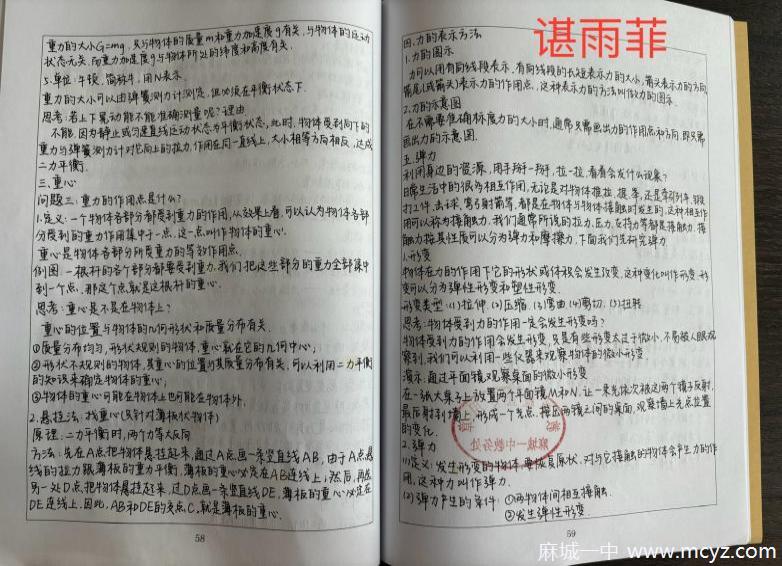 重力的大小G=mg,只与物体的质量m和重力加速度g有关,与物体的运动
状态无关.而重力加速度g与物体所处的纬度和高度有关.
5.单位:牛顿,简称牛.用N表示.
重力的大小可以由弹簧测力计测定,但必须在平衡状态下.
思考:若上下晃动能不能准确测量呢?理由
不能.因为静止或匀速直线运动状态为平衡状态,此时,物体受到向下的
重力与弹簧测力计对它向上的拉力,作用在同一直线上,大小相等方向相反,达成
二力平衡.
三.重心
问题三:重力的作用点是什么?
1.定义:一个物体各部分都受到重力的作用,从效果上看,可以认为物体各部
分受到的重力作用集中于一点,这一点叫作物体的重心.
重心是物体各部分所受重力的等效作用点.
例图:一根杆的各个部分都要受到重力,我们把这些部分的重力全部集中
到一个点,那这个点就是这根杆的重心.
思考:重心是不是在物体上?
重心的位置与物体的几何形状和质量分布有关.
①质量分布均匀,形状规则的物体,重心就在它的几何中心;
②形状不规则的物体,其重心的位置与其质量分布有关,可以利用二力平衡
的知识来确定物体的重心;
③物体的重心可能在物体上也可能在物体外.
2.悬挂法:找重心(只针对薄板状物体)
原理:二力平衡时,两个力等大反向
方法:先在A点把物体悬挂起来,通过A点画一条竖直线AB,由于A点悬
线的拉力跟薄板的重力平衡,薄板的重心必定在AB连线上;然后,再在
另一处D点把物体悬挂起来,过D点画一条竖直线DE,薄板的重心必定在
DE连线上.因此,AB和DE的交点C,就是薄板的重心.
58
谌雨菲
四.力的表示方法
1.力的图示
力可以用有向线段表示.有向线段的长短表示力的大小,箭头表示力的方向
箭尾(或箭头)表示力的作用点.这种表示力的方法叫做力的图示.
2.力的示意图
在不需要准确标度力的大小时,通常只需画出力的作用点和方向,即只需
画出力的示意图.
五.弹力
利用身边的资源,用手掰一掰,拉一拉,看看会发什么现象?
日常生活中的很为相互作用,无论是对物体推拉,提、举,还是牵引列车,锻
打工件,击球,弯弓射箭等,都是在物体与物体接触时发生的,这种相互作
用可以称为接触力.我们通常所说的拉力、压力、支持力等都是接触力.接
触力按其性质可以分为弹力和摩擦力,下面我们先研究弹力
1.形变
物体在力的作用下它的形状或体积会发生改变,这种变化叫作形变.形
变可以分为弹性形变和塑性形变.
形变类型:(1)拉伸.(2)压缩.(3)弯曲(4)剪切.(5)扭转
思考:物体受到力的作用一定会发生形变吗?
物体受到力的作用会发生形变,只是有些形变太过于微小,不易被人眼观
察到,我们可以利用一些仪器来观察物体的微小形变
演示:通过平面镜观察桌面的微小形变
在一张大桌子上放置两个平面镜M和N,让一束光依次被这两个镜子反射,
最后射到墙上,形成一个光点.按压两镜之间的桌面,观察墙上光点位置
的变化.
2.弹力
(1)定义:发生形变的物体,要恢复原状,对与它接触的物体会产生力的作
用,这种力叫作弹力.
(2)弹力产生的条件:①两物体间相互接触.
②发生弹性形变.
59
麻城一中教务处
麻城一中 www.mcyz.com